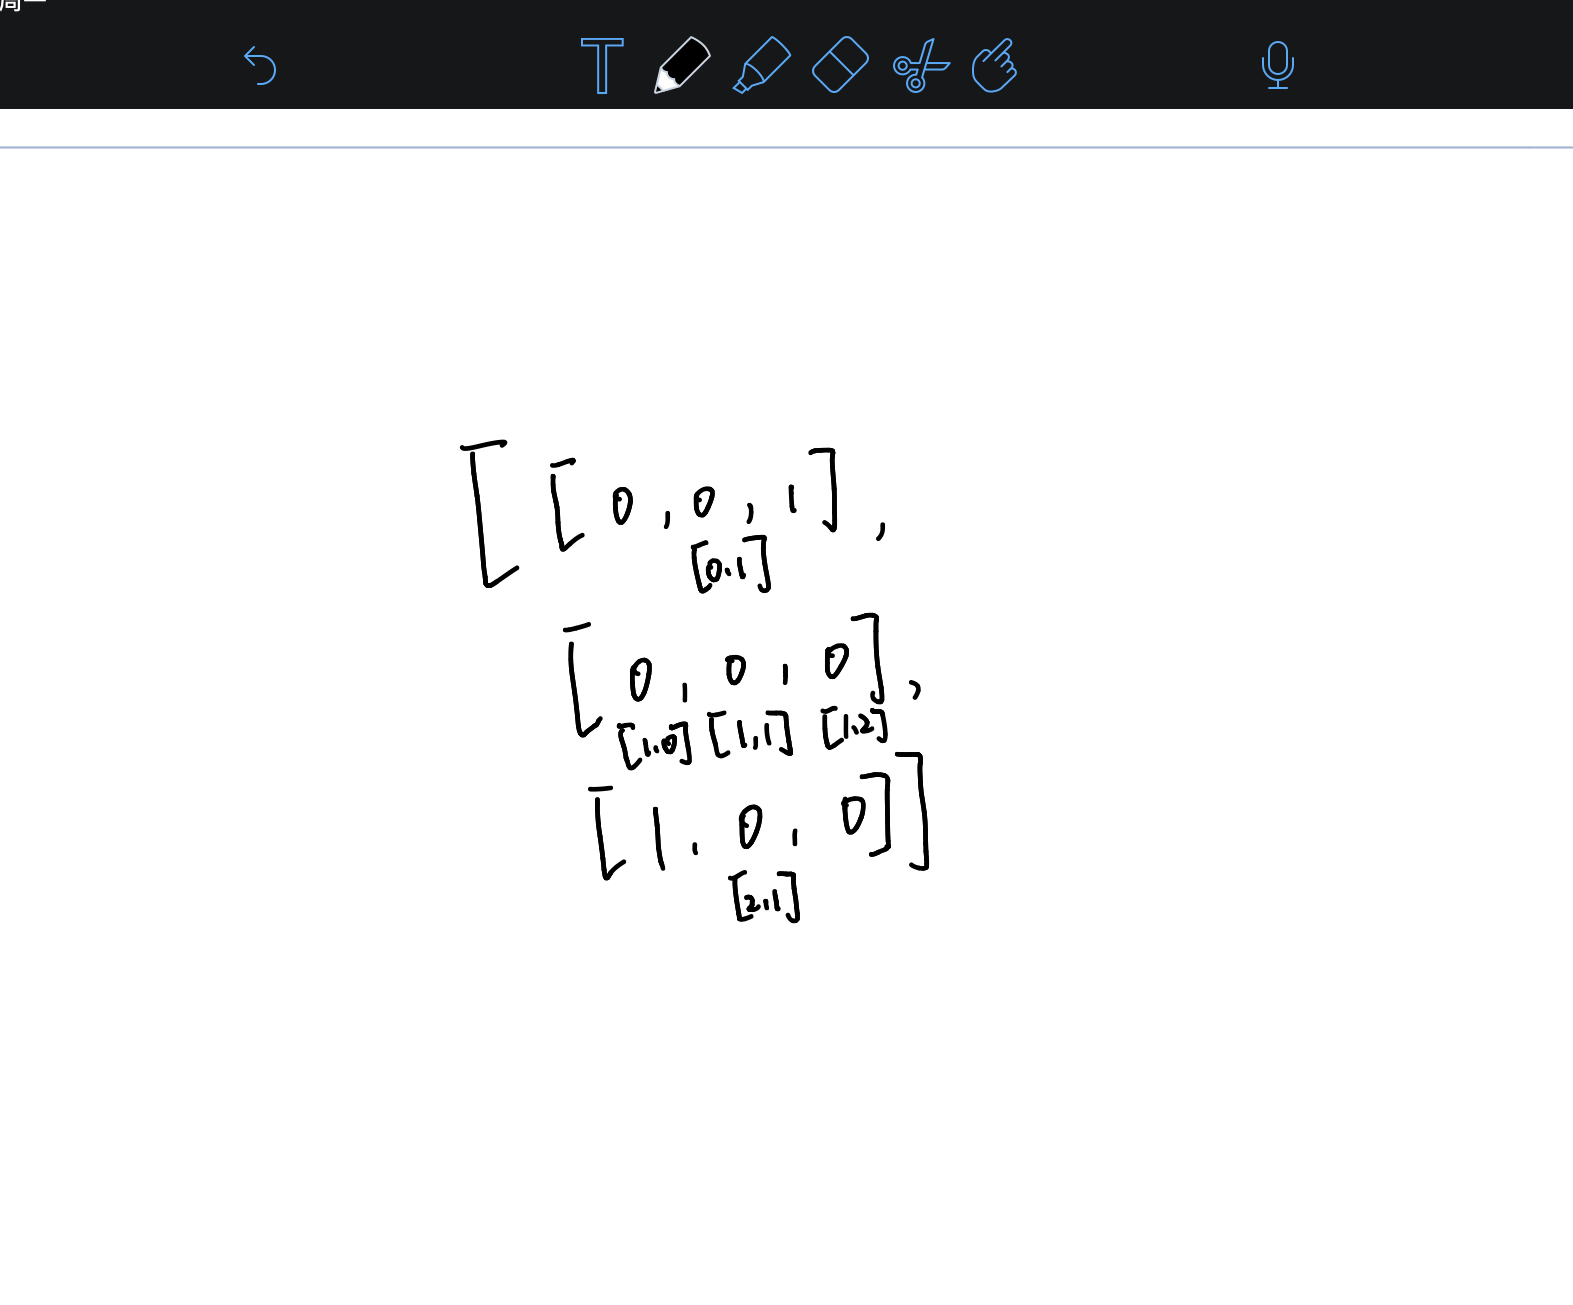 周一
T
[ [ 0 , 0 , 1 ] ,
[0.1]
[ 0 , 0 , 0 ] ,
[1.0] [1,1] [1.2]
[ 1 . 0 , 0 ] ]
[2.1]